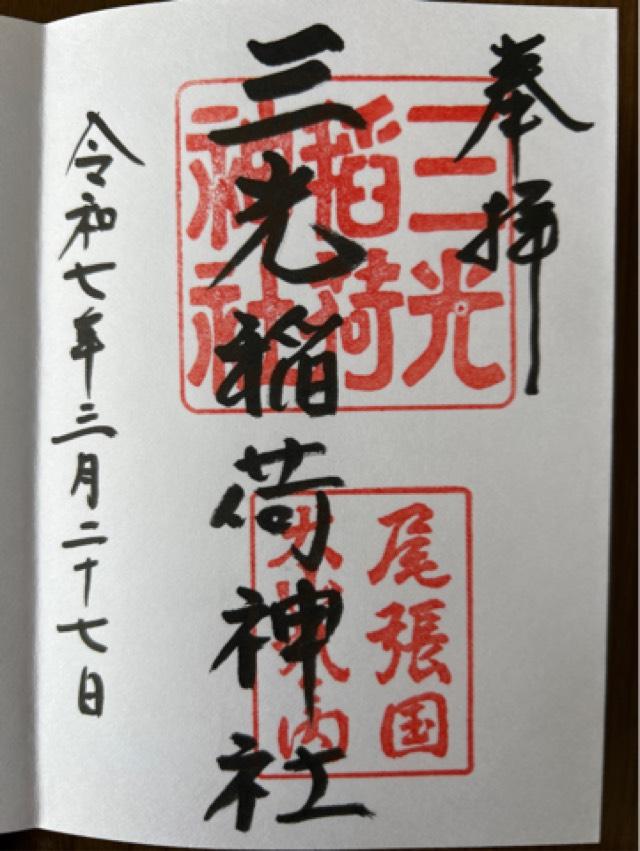 奉拝
三光稲荷神社
三光
稲荷
神社
尾張国
犬山城内
令和七年三月二十七日